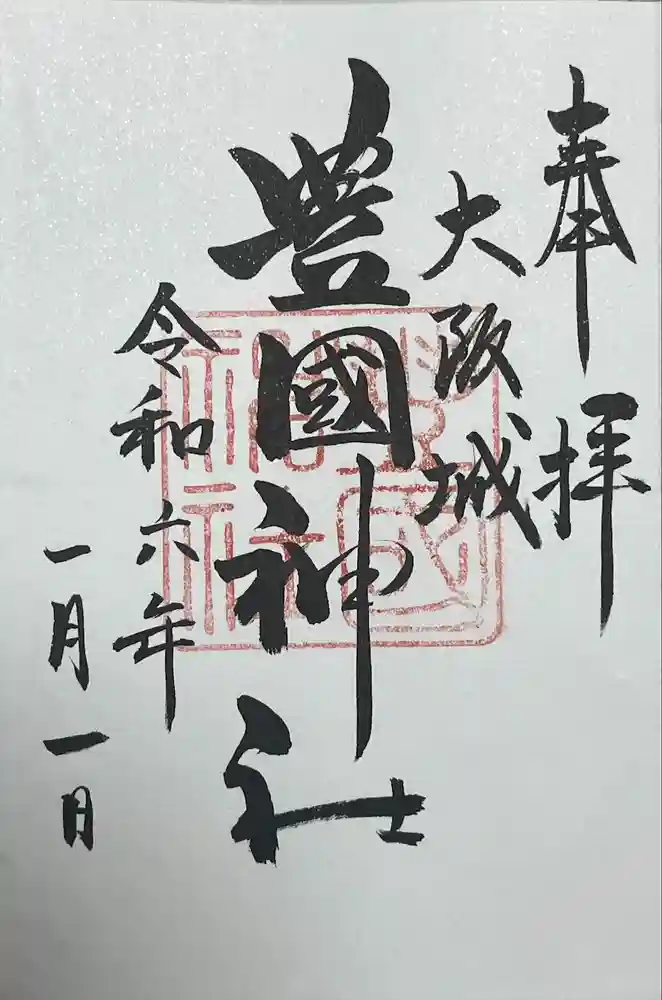 奉拝
大阪城
豊國神社
令和六年
一月一日